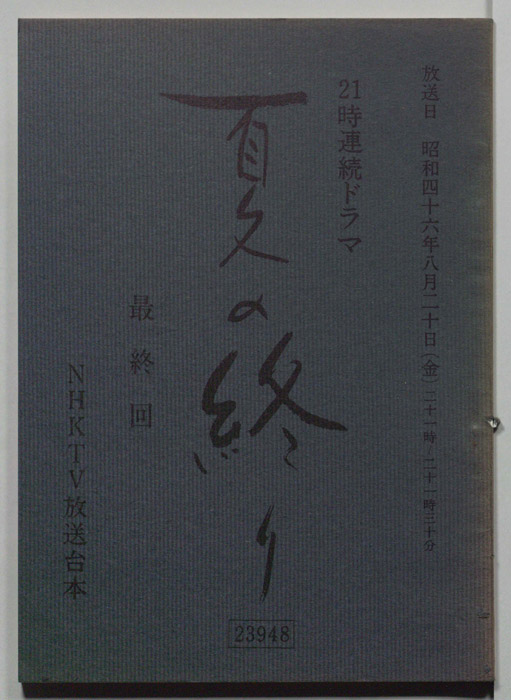 放送日 昭和四十六年八月二十日(金)二十一時/二十一時三十分
21時連続ドラマ
夏の終り
最終回
NHKTV放送台本
23948